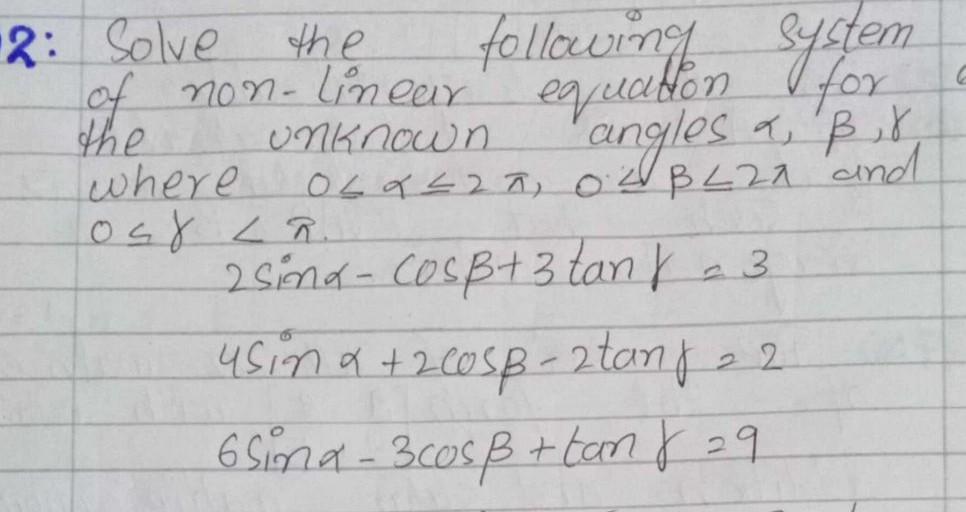 2: Solve the following system
of non-linear equation for
the unknown angles α, β, γ
where 0 ≤ α ≤ 2π, 0 ≤ β ≤ 2π and
0 ≤ γ < π.
2sinα - cosβ + 3tanγ = 3
4sinα + 2cosβ - 2tanγ = 2
6sinα - 3cosβ + tanγ = 9